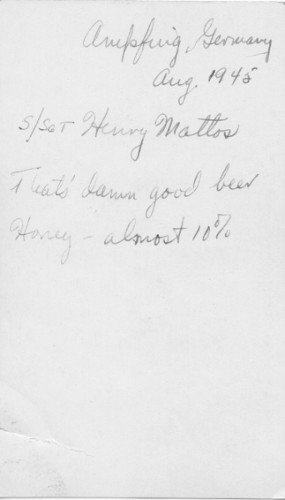 Ampfing, Germany
Aug. 1945
S/SGT Henry Mattos
That's damn good beer
Honey - almost 10%